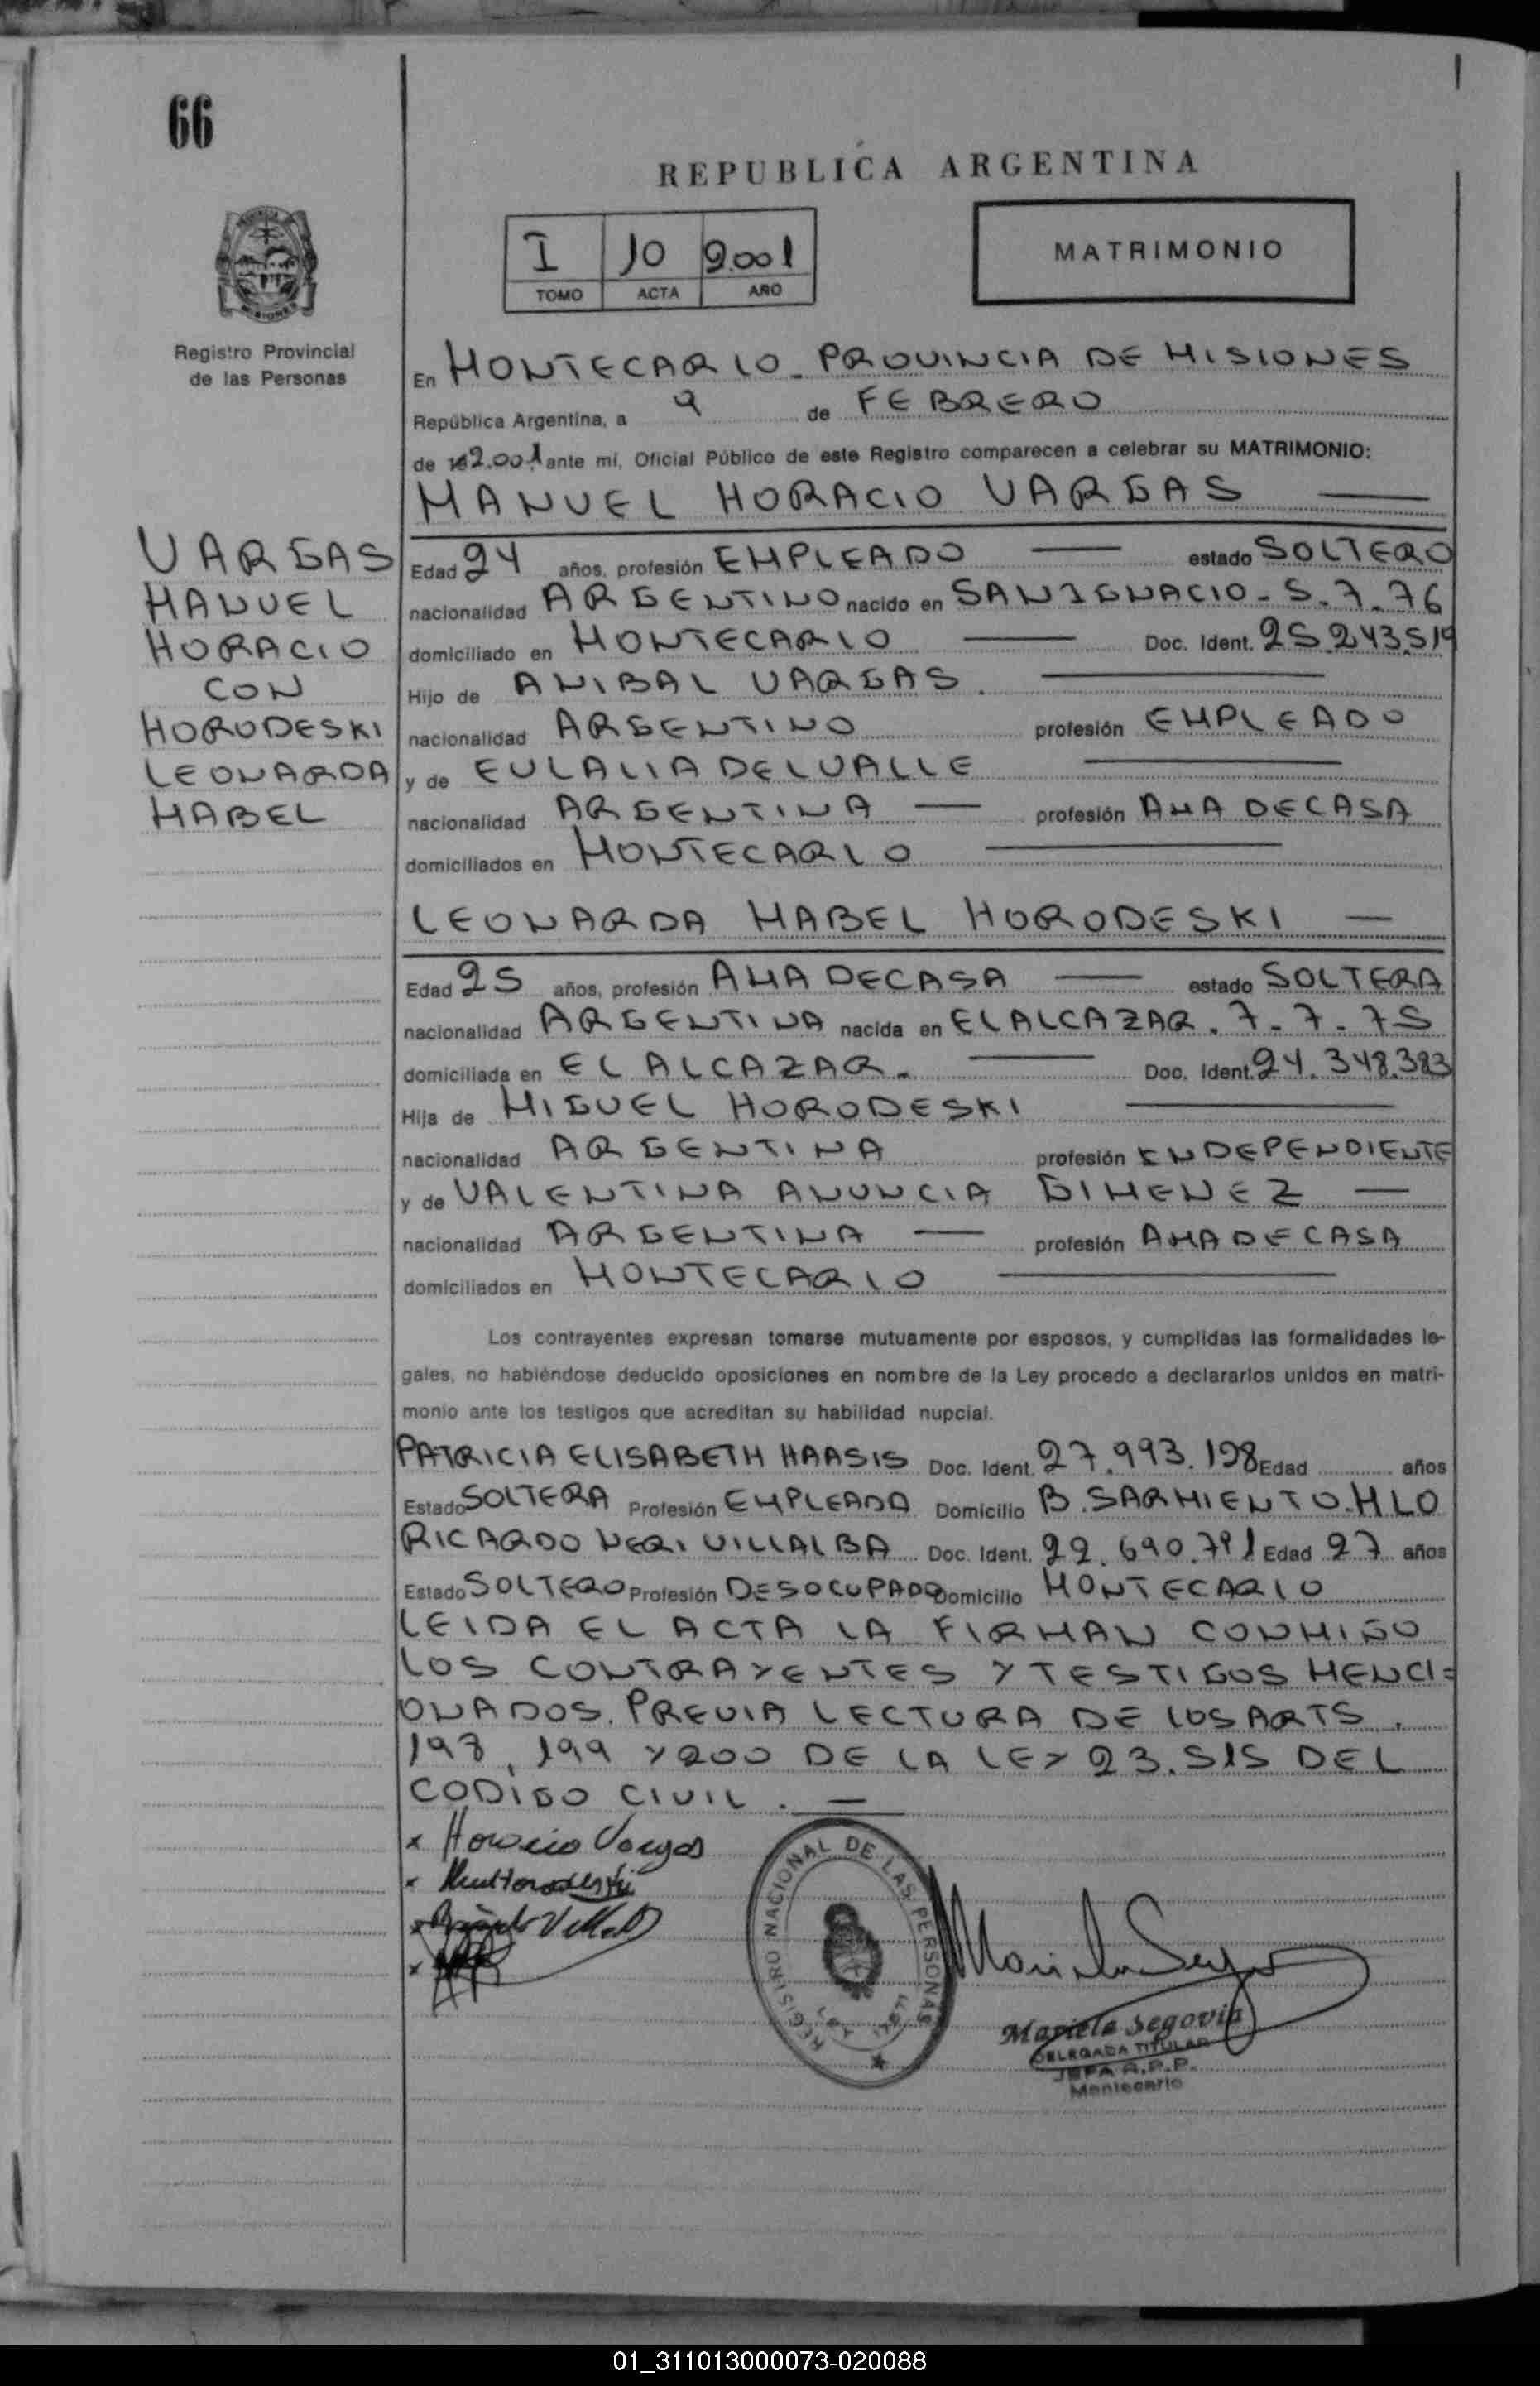 66
REPUBLICA ARGENTINA
I 10 2.001
TOMO ACTA AÑO
MATRIMONIO
Registro Provincial
de las Personas
En MONTECARLO - PROVINCIA DE MISIONES
República Argentina, a 9 de FEBRERO
de 2.001 ante mí, Oficial Público de este Registro comparecen a celebrar su MATRIMONIO:
MANUEL HORACIO VARGAS
VARGAS
MANUEL
HORACIO
CON
HORODESKI
LEONARDA
MABEL
Edad 24 años, profesión EMPLEADO estado SOLTERO
nacionalidad ARGENTINO nacido en SAN IGNACIO - 5.7.76
domiciliado en MONTECARLO Doc. Ident. 25.243.519
Hijo de ANIBAL VARGAS.
nacionalidad ARGENTINO profesión EMPLEADO
y de EULALIA DEL VALLE
nacionalidad ARGENTINA profesión AMA DE CASA
domiciliados en MONTECARLO
LEONARDA MABEL HORODESKI
Edad 25 años, profesión AMA DE CASA estado SOLTERA
nacionalidad ARGENTINA nacida en EL ALCAZAR. 7-7-75
domiciliada en EL ALCAZAR. Doc. Ident. 24.348.383
Hija de MIGUEL HORODESKI
nacionalidad ARGENTINA profesión INDEPENDIENTE
y de VALENTINA ANUNCIA GIMENEZ
nacionalidad ARGENTINA profesión AMA DE CASA
domiciliados en MONTECARLO
Los contrayentes expresan tomarse mutuamente por esposos, y cumplidas las formalidades le-
gales, no habiéndose deducido oposiciones en nombre de la Ley procedo a declararlos unidos en matri-
monio ante los testigos que acreditan su habilidad nupcial.
PATRICIA ELISABETH HAASIS Doc. Ident. 27.993.198 Edad años
Estado SOLTERA Profesión EMPLEADA Domicilio B. SARMIENTO. MLO
RICARDO NERI VILLALBA Doc. Ident. 22.690.791 Edad 27 años
Estado SOLTERO Profesión DESOCUPADO Domicilio MONTECARLO
LEIDA EL ACTA LA FIRMAN CONMIGO
LOS CONTRAYENTES Y TESTIGOS MENCI=
ONADOS. PREVIA LECTURA DE LOS ARTS.
198, 199 Y 200 DE LA LEY 23.515 DEL
CODIGO CIVIL.
x Horacio Vargas
x
x
x
REGISTRO NACIONAL DE LAS PERSONAS
LEY 17671
Mariela Segovia
DELEGADA TITULAR
JEFA R.P.P.
Montecarlo
01_311013000073-020088